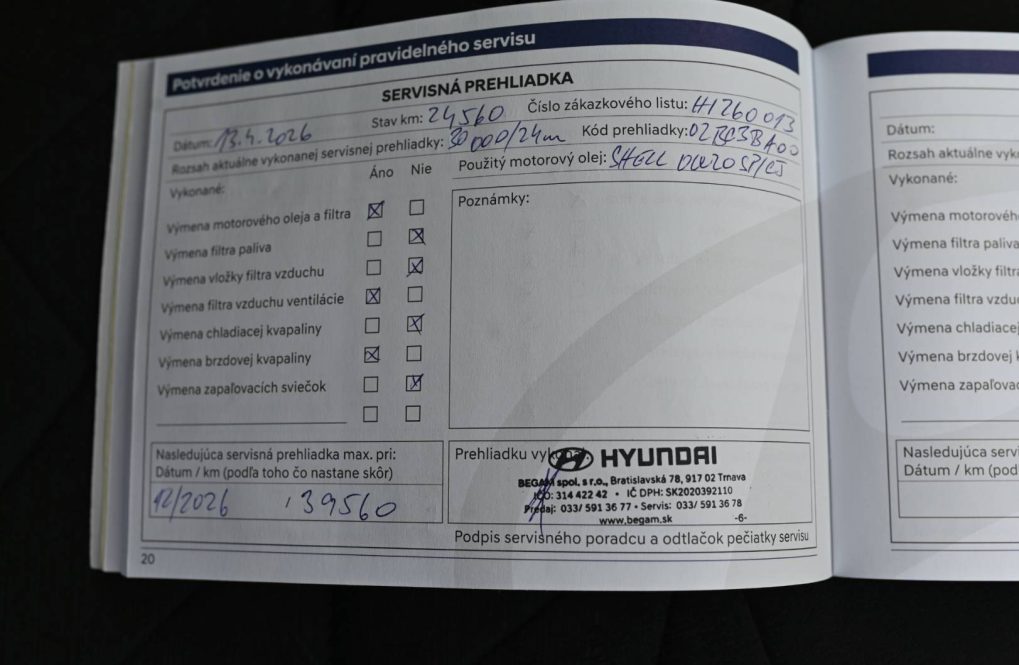 Potvrdenie o vykonávaní pravidelného servisu
SERVISNÁ PREHLIADKA
Dátum: 13.4.2026 Stav km: 24560 Číslo zákazkového listu: H1260013
Rozsah aktuálne vykonanej servisnej prehliadky: 30 000/24m Kód prehliadky:
Vykonané: Áno Nie Použitý motorový olej: SHELL 0W20
Výmena motorového oleja a filtra
Výmena filtra paliva
Výmena vložky filtra vzduchu
Výmena filtra vzduchu ventilácie
Výmena chladiacej kvapaliny
Výmena brzdovej kvapaliny
Výmena zapaľovacích sviečok
Poznámky:
Nasledujúca servisná prehliadka max. pri:
Dátum / km (podľa toho čo nastane skôr)
12/2026 39560
Prehliadku
HYUNDAI
BEGAM spol. s r.o., Bratislavská 78, 917 02 Trnava
IČO: 314 422 42 • IČ DPH: SK2020392110
Predaj: 033/ 591 36 77 • Servis: 033/ 591 36 78
www.begam.sk -6-
Podpis servisného poradcu a odtlačok pečiatky servisu
20
Dátum:
Rozsah aktuálne
Vykonané:
Výmena
Výmena filtra paliva
Výmena vložky
Výmena filtra
Výmena
Výmena brzdovej
Výmena
Nasledujúca
Dátum / km